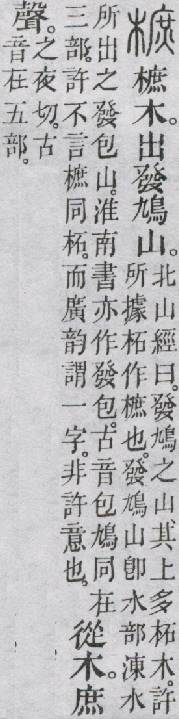 樜 樜木。出發鳩山。
北山經曰。發鳩之山。其上多柘木。許
所據柘作樜也。發鳩山卽水部涷水
所出之發包山。淮南書亦作發包。古音包鳩同在
三部。許不言樜同柘。而廣韵謂一字。非許意也。
從木。庶
聲。
之夜切。古
音在五部。